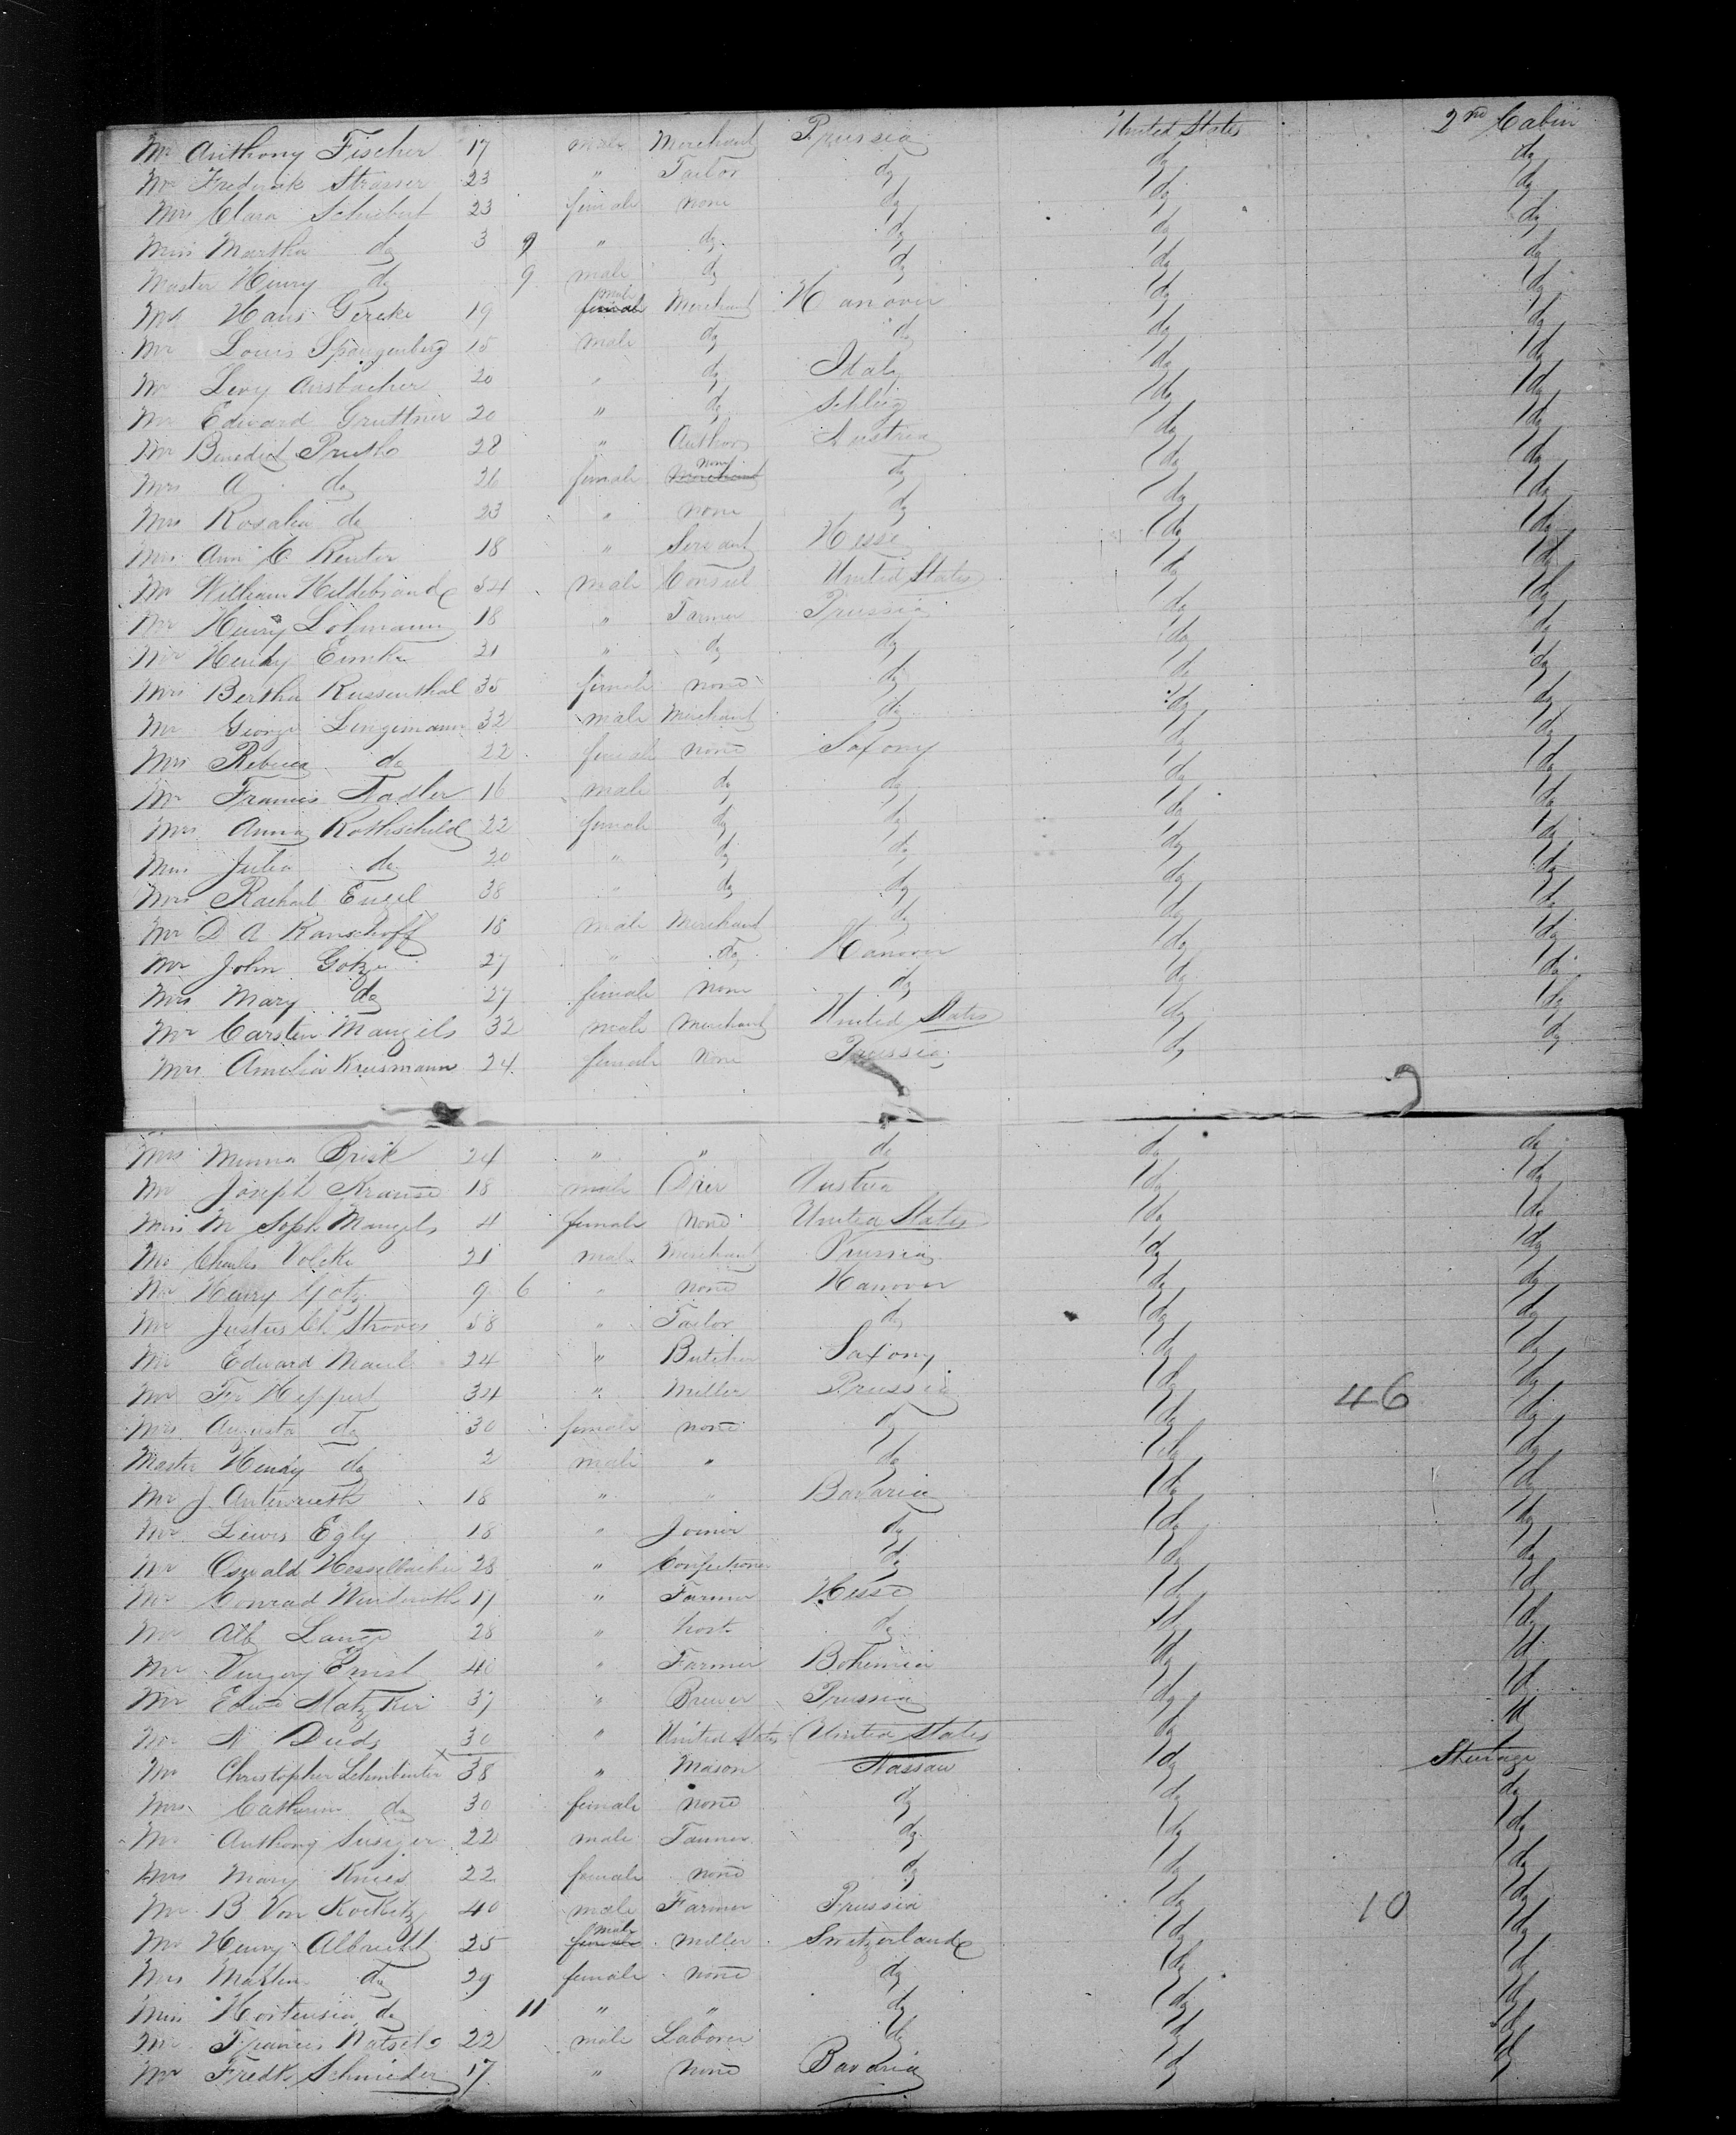 Mr Anthony Fischer 17 male Merchant Prussia United States 2nd Cabin
Mr Frederick Strasser 23 " Tailor do do do
Mrs Clara Schubert 23 female none do do do
Miss Martha do 3 9 " do do do do
Master Henry do 9 male do do do do
Mr Hans Gercke 19 male Merchant Hanover do do
Mr Louis Spangenberg 15 male do do do do
Mr Levy Ansbacher 20 " do Italy do do
Mr Edward Gruttner 20 " do do do
Mr Benedict 28 " Author Austria do do
Mrs A do 26 female none do do do
Mrs Rosalia do 23 " none do do do
Mrs Ann C. Reuter 18 " Servant Hesse do do
Mr William Hildebrand 54 male Consul United States do do
Mr Henry Lohmann 18 " Farmer Prussia do do
Mr Henry 21 " do do do do
Mrs Bertha Russenthal 35 female none do do do
Mr George Lingemann 32 male Merchant do do do
Mrs Rebecca do 22 female none Saxony do do
Mr Francis Nadler 16 male do do do do
Mrs Anna Rothschild 22 female do do do do
Miss Julia do 20 " do do do do
Mrs Rachel Engel 38 " do do do do
Mr D. A. Ranschoff 18 male Merchant do do do
Mr John Gotze 27 " do Hanover do do
Mrs Mary do 27 female none do do do
Mr Carsten Mangels 32 male Merchant United States do do
Mrs Amelia Krusmann 24 female none Prussia do do
Mrs Minna Brick 24 " " do do do
Mr Joseph Krause 18 male Austria do do
Miss M Soph Mangels 4 female none United States do do
Mr Charles Volcke 21 male Merchant Prussia do do
Mr Henry Gotz 9 6 " none Hanover do do
Mr Justus Ch. 58 " Tailor do do do
Mr Edward Maul 24 " Butcher Saxony do do
Mr Fr Heppert 34 " Miller Prussia do 46 do
Mrs Augusta do 30 female none do do do
Master Henry do 2 male " do do do
Mr J. Autenrieth 18 " " Bavaria do do
Mr Lewis Egly 18 " Joiner do do do
Mr Oswald Hesselbacher 28 " Confectioner do do do
Mr Conrad Windrath 17 " Farmer Hesse do do
Mr Alb Lange 28 " host do do do
Mr Ernst 40 " Farmer Bohemia do do
Mr Edwd Matzker 37 " Brewer Prussia do do
Mr A Duds 30 " United States United States do do
Mr Christopher 38 " Mason Nassau do Steerage
Mrs Catherine do 30 female none do do do
Mr Anthony 22 male Tanner do do do
Mrs Mary Knies 22 female none do do do
Mr B Von 40 male Farmer Prussia do 10 do
Mr Henry Albrecht 25 male Miller Switzerland do do
Mrs do 29 female none do do do
Miss Hortensia do 11 " " do do do
Mr Francis 22 male Laborer do do do
Mr Fredk Schnieder 17 " none Bavaria do do